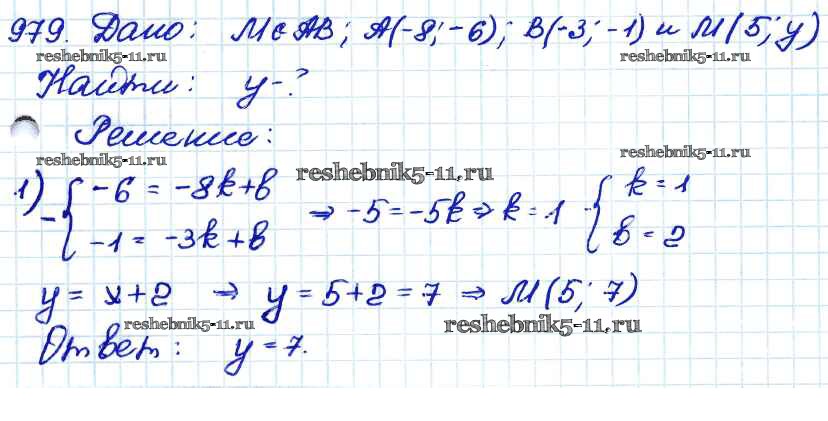 979. Дано: M ∈ AB; A(-8; -6); B(-3; -1) и M(5; y)
reshebnik5-11.ru reshebnik5-11.ru
Найти: y - ?
Решение:
reshebnik5-11.ru reshebnik5-11.ru reshebnik5-11.ru
1) - { -6 = -8k + b
-1 = -3k + b ⇒ -5 = -5k ⇒ k = 1 { k = 1
b = 2
y = x + 2 → y = 5 + 2 = 7 ⇒ M(5; 7)
reshebnik5-11.ru reshebnik5-11.ru
Ответ: y = 7.